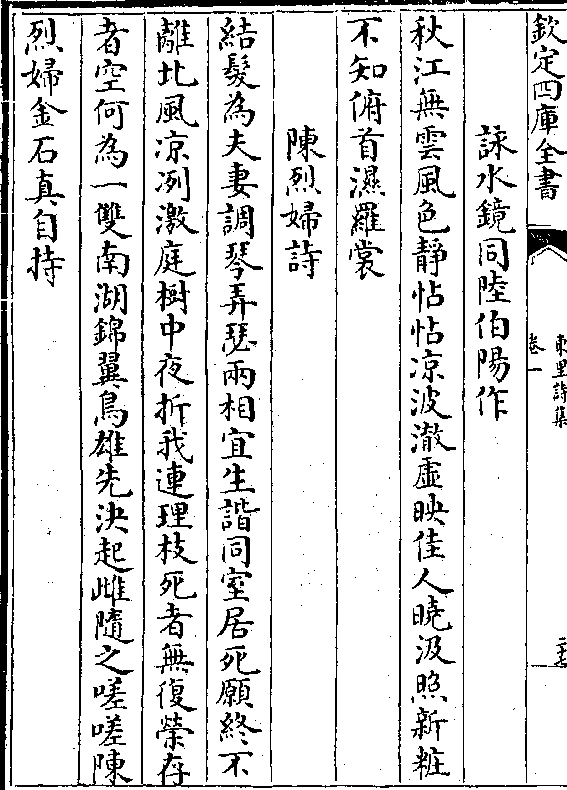 欽定四庫全書
東里詩集
卷一
詠水鏡同陸伯陽作
秋江無雲風色靜帖帖凉波澈虛映佳人曉汲照新粧
不知俯首濕羅裳
陳烈婦詩
結髮為夫妻調琴弄瑟兩相宜生諧同室居死願終不
離北風凉冽激庭樹中夜折我連理枝死者無復榮存
者空何為一雙南湖錦翼鳥雄先決起雌隨之嗟嗟陳
烈婦金石真自持